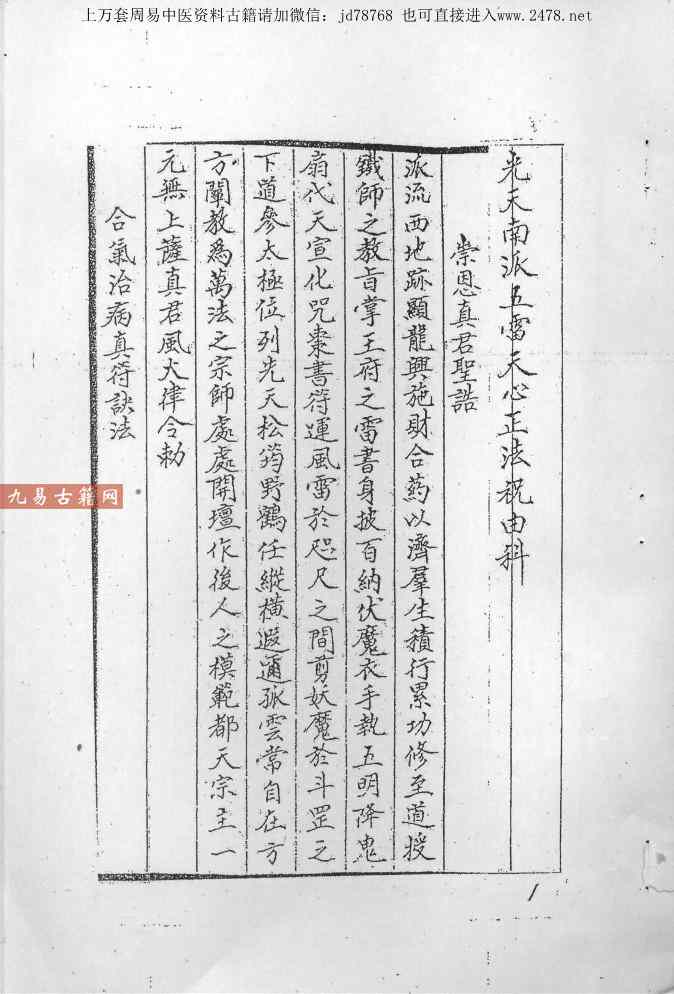 上万套周易中医资料古籍请加微信：jd78768 也可直接进入www.2478.net
光天南派五雷天心正法祝由科
崇恩真君聖誥
派流西地跡顯龍興施財合药以濟羣生積行累功修至道授
鐵師之教旨掌王府之雷書身披百納伏魔衣手執五明降鬼
扇代天宣化咒棗書符運風雷於咫尺之間剪妖魔於斗罡之
下道參太極位列先天松筠野鶴任縱橫遐邇孤雲常自在方
方闡教為萬法之宗師處處開壇作後人之模範都天宗主一
元無上薩真君風火律令勅
合氣治病真符訣法
九易古籍网
1